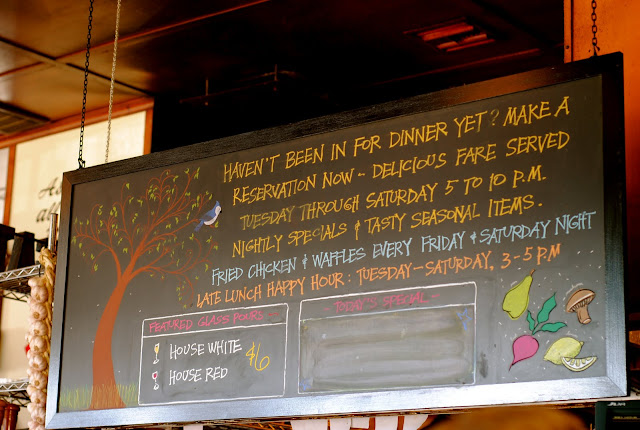 HAVEN'T BEEN IN FOR DINNER YET? MAKE A
RESERVATION NOW - DELICIOUS FARE SERVED
TUESDAY THROUGH SATURDAY 5 TO 10 P.M.
NIGHTLY SPECIALS & TASTY SEASONAL ITEMS.
FRIED CHICKEN & WAFFLES EVERY FRIDAY & SATURDAY NIGHT
LATE LUNCH HAPPY HOUR: TUESDAY-SATURDAY, 3-5 P.M
FEATURED GLASS POURS
HOUSE WHITE
HOUSE RED
$6
- TODAY'S SPECIAL -